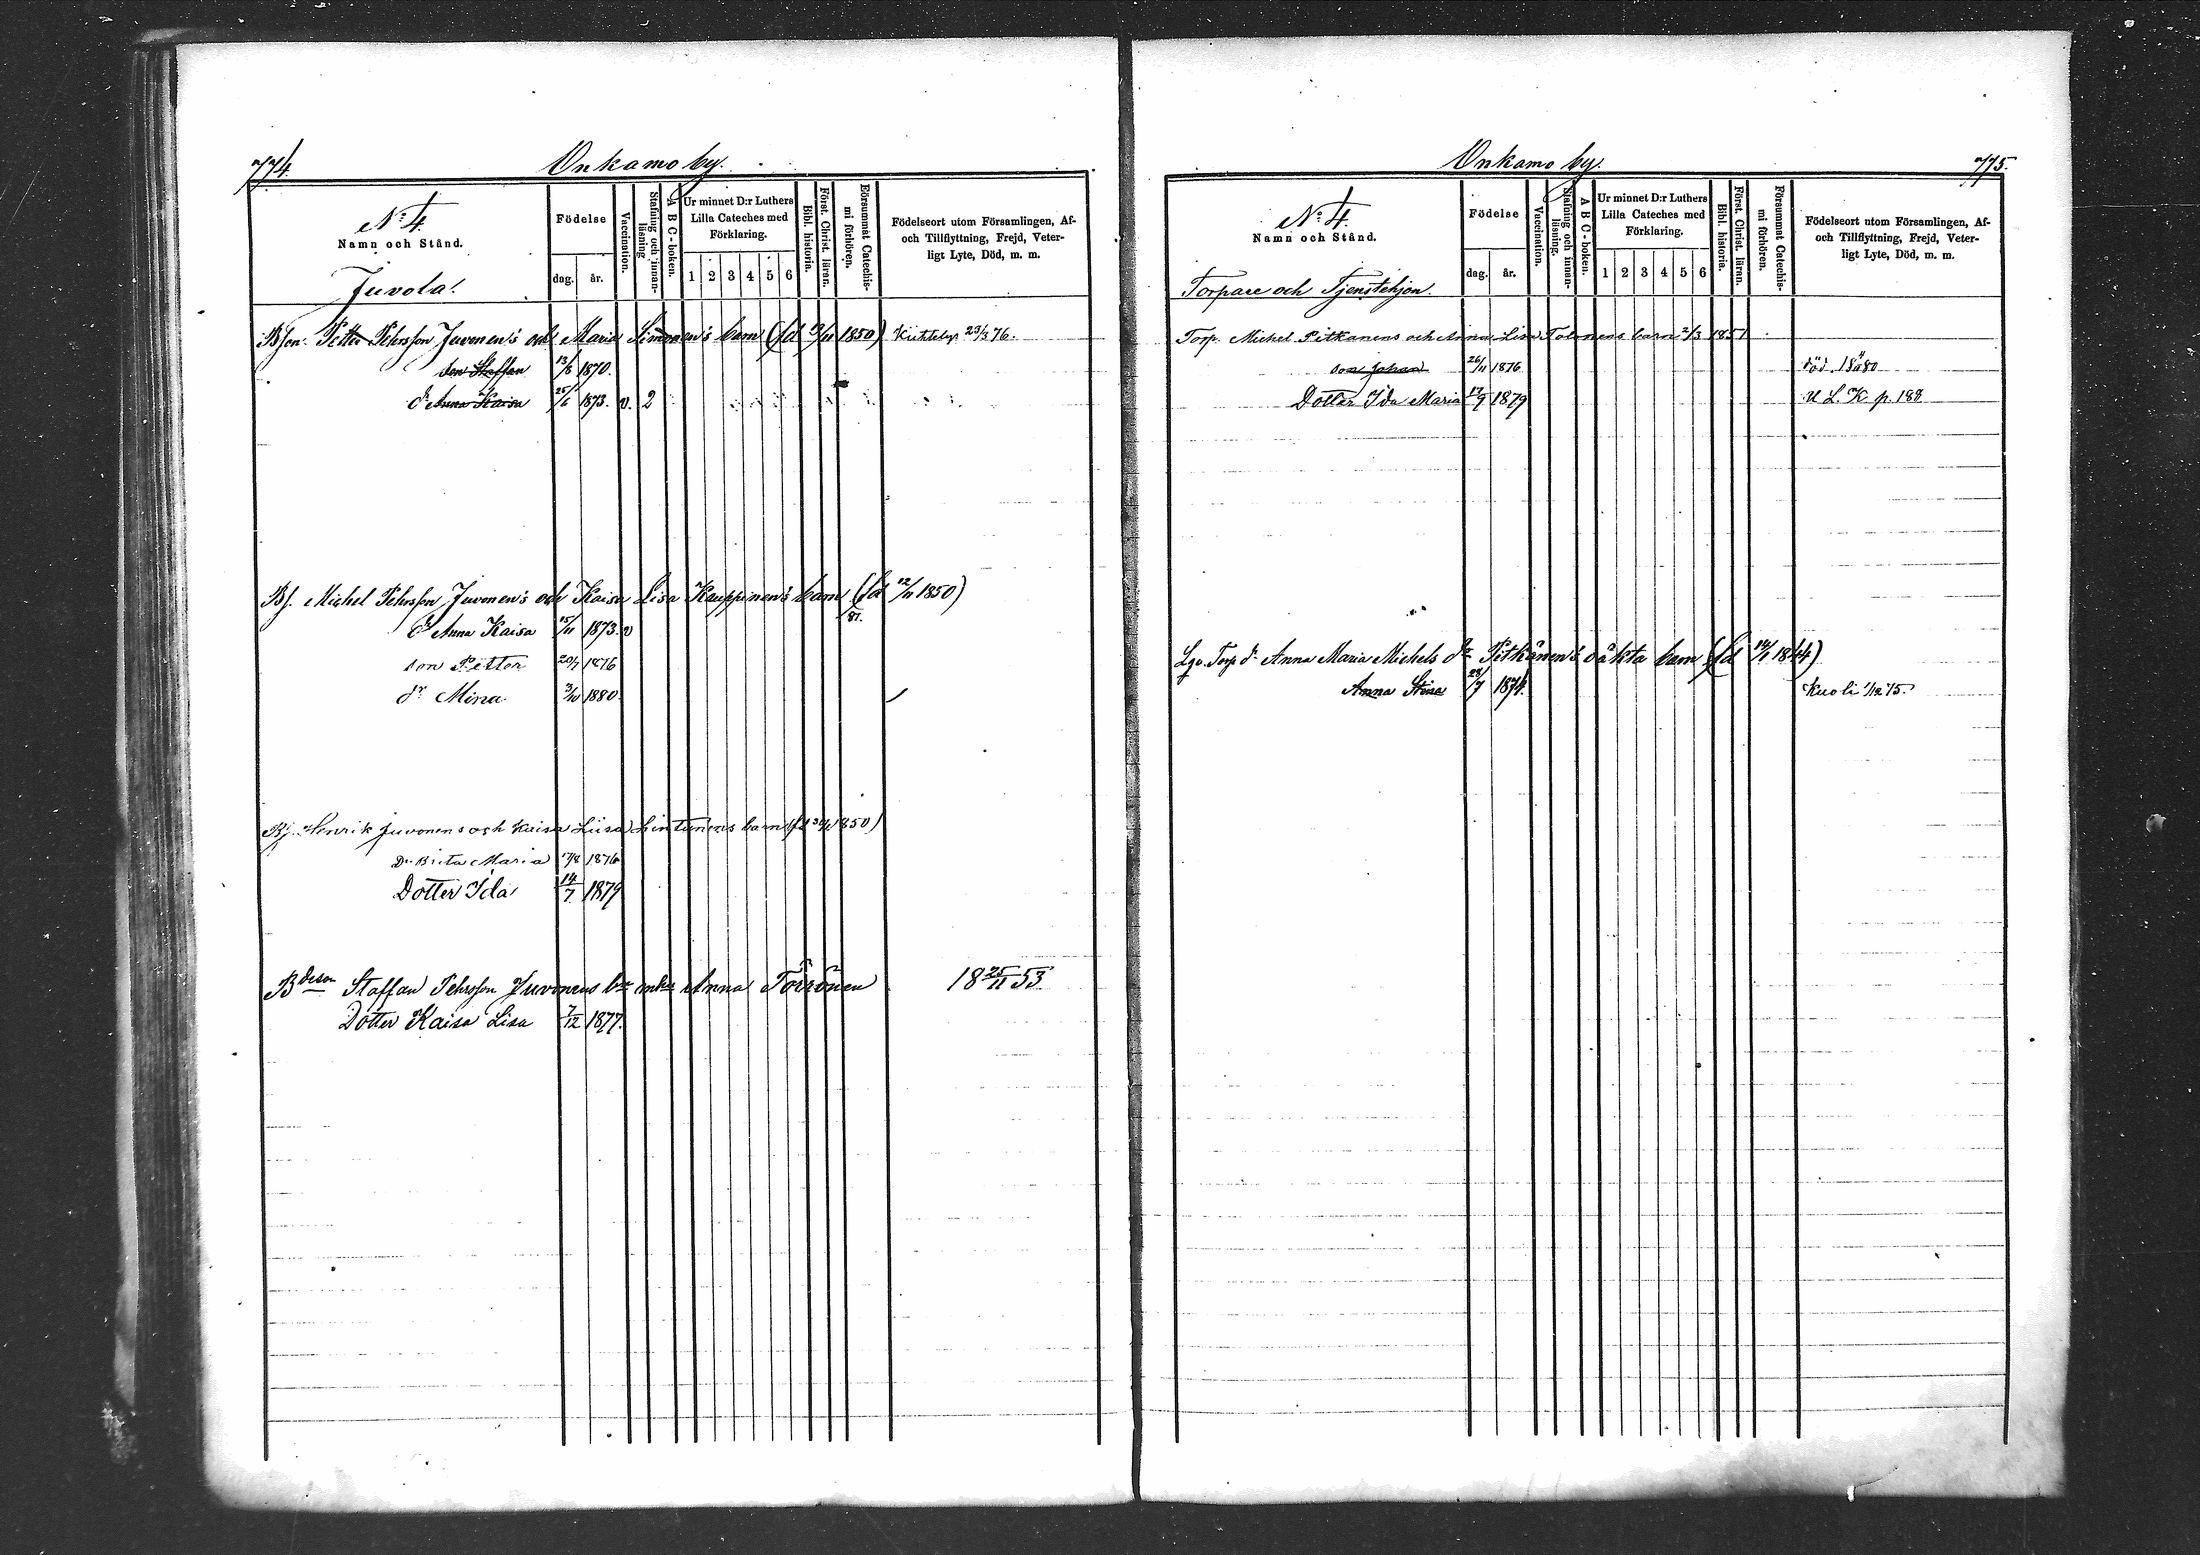 774.
Onkamo by.
No 4.
Namn och Stånd.
Juvola.
Födelse
dag.
år.
Vaccination.
Stafning och innan-läsning
A B C-boken.
Ur minnet D:r Luthers
Lilla Cateches med
Förklaring.
1 2 3 4 5 6
Bibl. historia.
Först. Christ. läran.
Försummat Catechis-mi förhören.
Födelseort utom Församlingen, Af-
och Tillflyttning, Frejd, Veter-
ligt Lyte, Död, m. m.
Bson. Petter Pehrsson Juvonen's och Maria Simonen's barn (fd 13/11 1850) 23/3 76.
son Staffan 13/8 1870.
dr Anna Kaisa 25/6 1873. v. 2
Bf. Michel Pehrsson Juvonen's och Kaisa Lisa Kauppinen's barn (fd 12/11 1850)
81.
dr Anna Kaisa 15/11 1873. v
son Petter 20/7 1876
dr Mina 3/10 1880.
Bf. Henrik Juvonens och Kaisa Liisa Lintunens barn (fd 1850)
Dr. Brita Maria 17/8 1876
Dotter Ida 14/7 1879
Bdeson Staffan Pehrsson Juvonens Anna Törrönen 18 25/11 53
Dotter Kaisa Lisa 7/12 1877.
775.
Onkamo by.
No 4.
Namn och Stånd.
Torpare och Tjenstehjon.
Födelse
dag.
år.
Vaccination.
Stafning och innan-läsning.
A B C-boken.
Ur minnet D:r Luthers
Lilla Cateches med
Förklaring.
1 2 3 4 5 6
Bibl. historia.
Först. Christ. läran.
Försummat Catechis-mi förhören.
Födelseort utom Församlingen, Af-
och Tillflyttning, Frejd, Veter-
ligt Lyte, Död, m. m.
Torp. Michel Pitkänens och Anna Lisa Tolonens barn 2/3 1851
son Johan 26/11 1876 död
Dotter Ida Maria 17/9 1879 U L. K p. 188
Torp dr Anna Maria Michels dr Pitkänen's oäkta barn (fd 14/1 1844)
Anna Stina 28/7 1874. Kuoli 1/12 75.